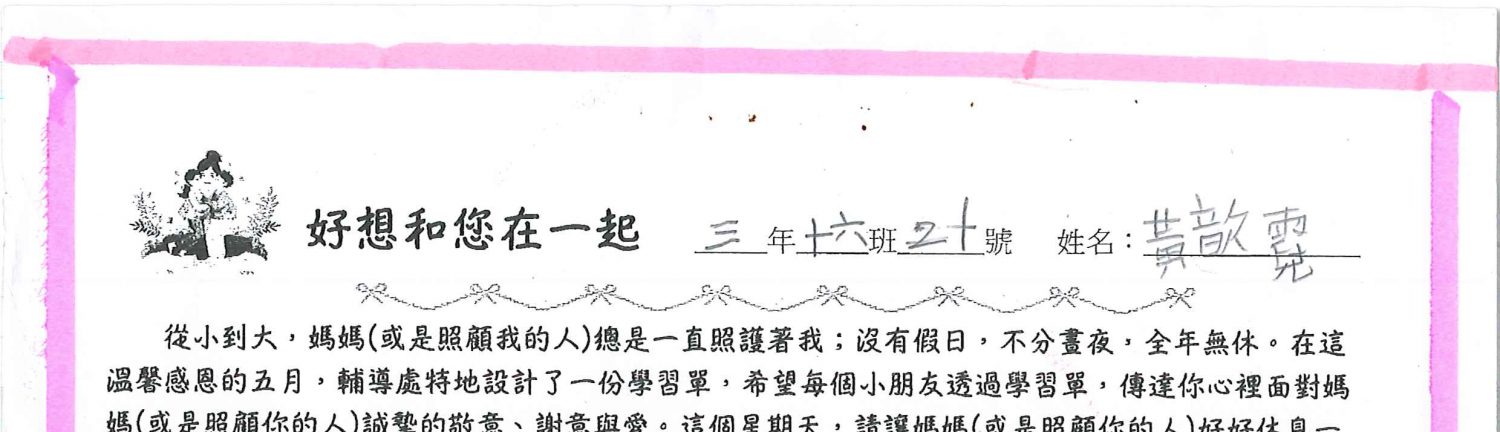 好想和您在一起 三年十六班二十號 姓名：黃歆霓
從小到大，媽媽(或是照顧我的人)總是一直照護著我；沒有假日，不分晝夜，全年無休。在這
溫馨感恩的五月，輔導處特地設計了一份學習單，希望每個小朋友透過學習單，傳達你心裡面對媽
媽(或是照顧你的人)誠摯的敬意、謝意與愛。這個星期天，請讓媽媽(或是照顧你的人)好好休息一